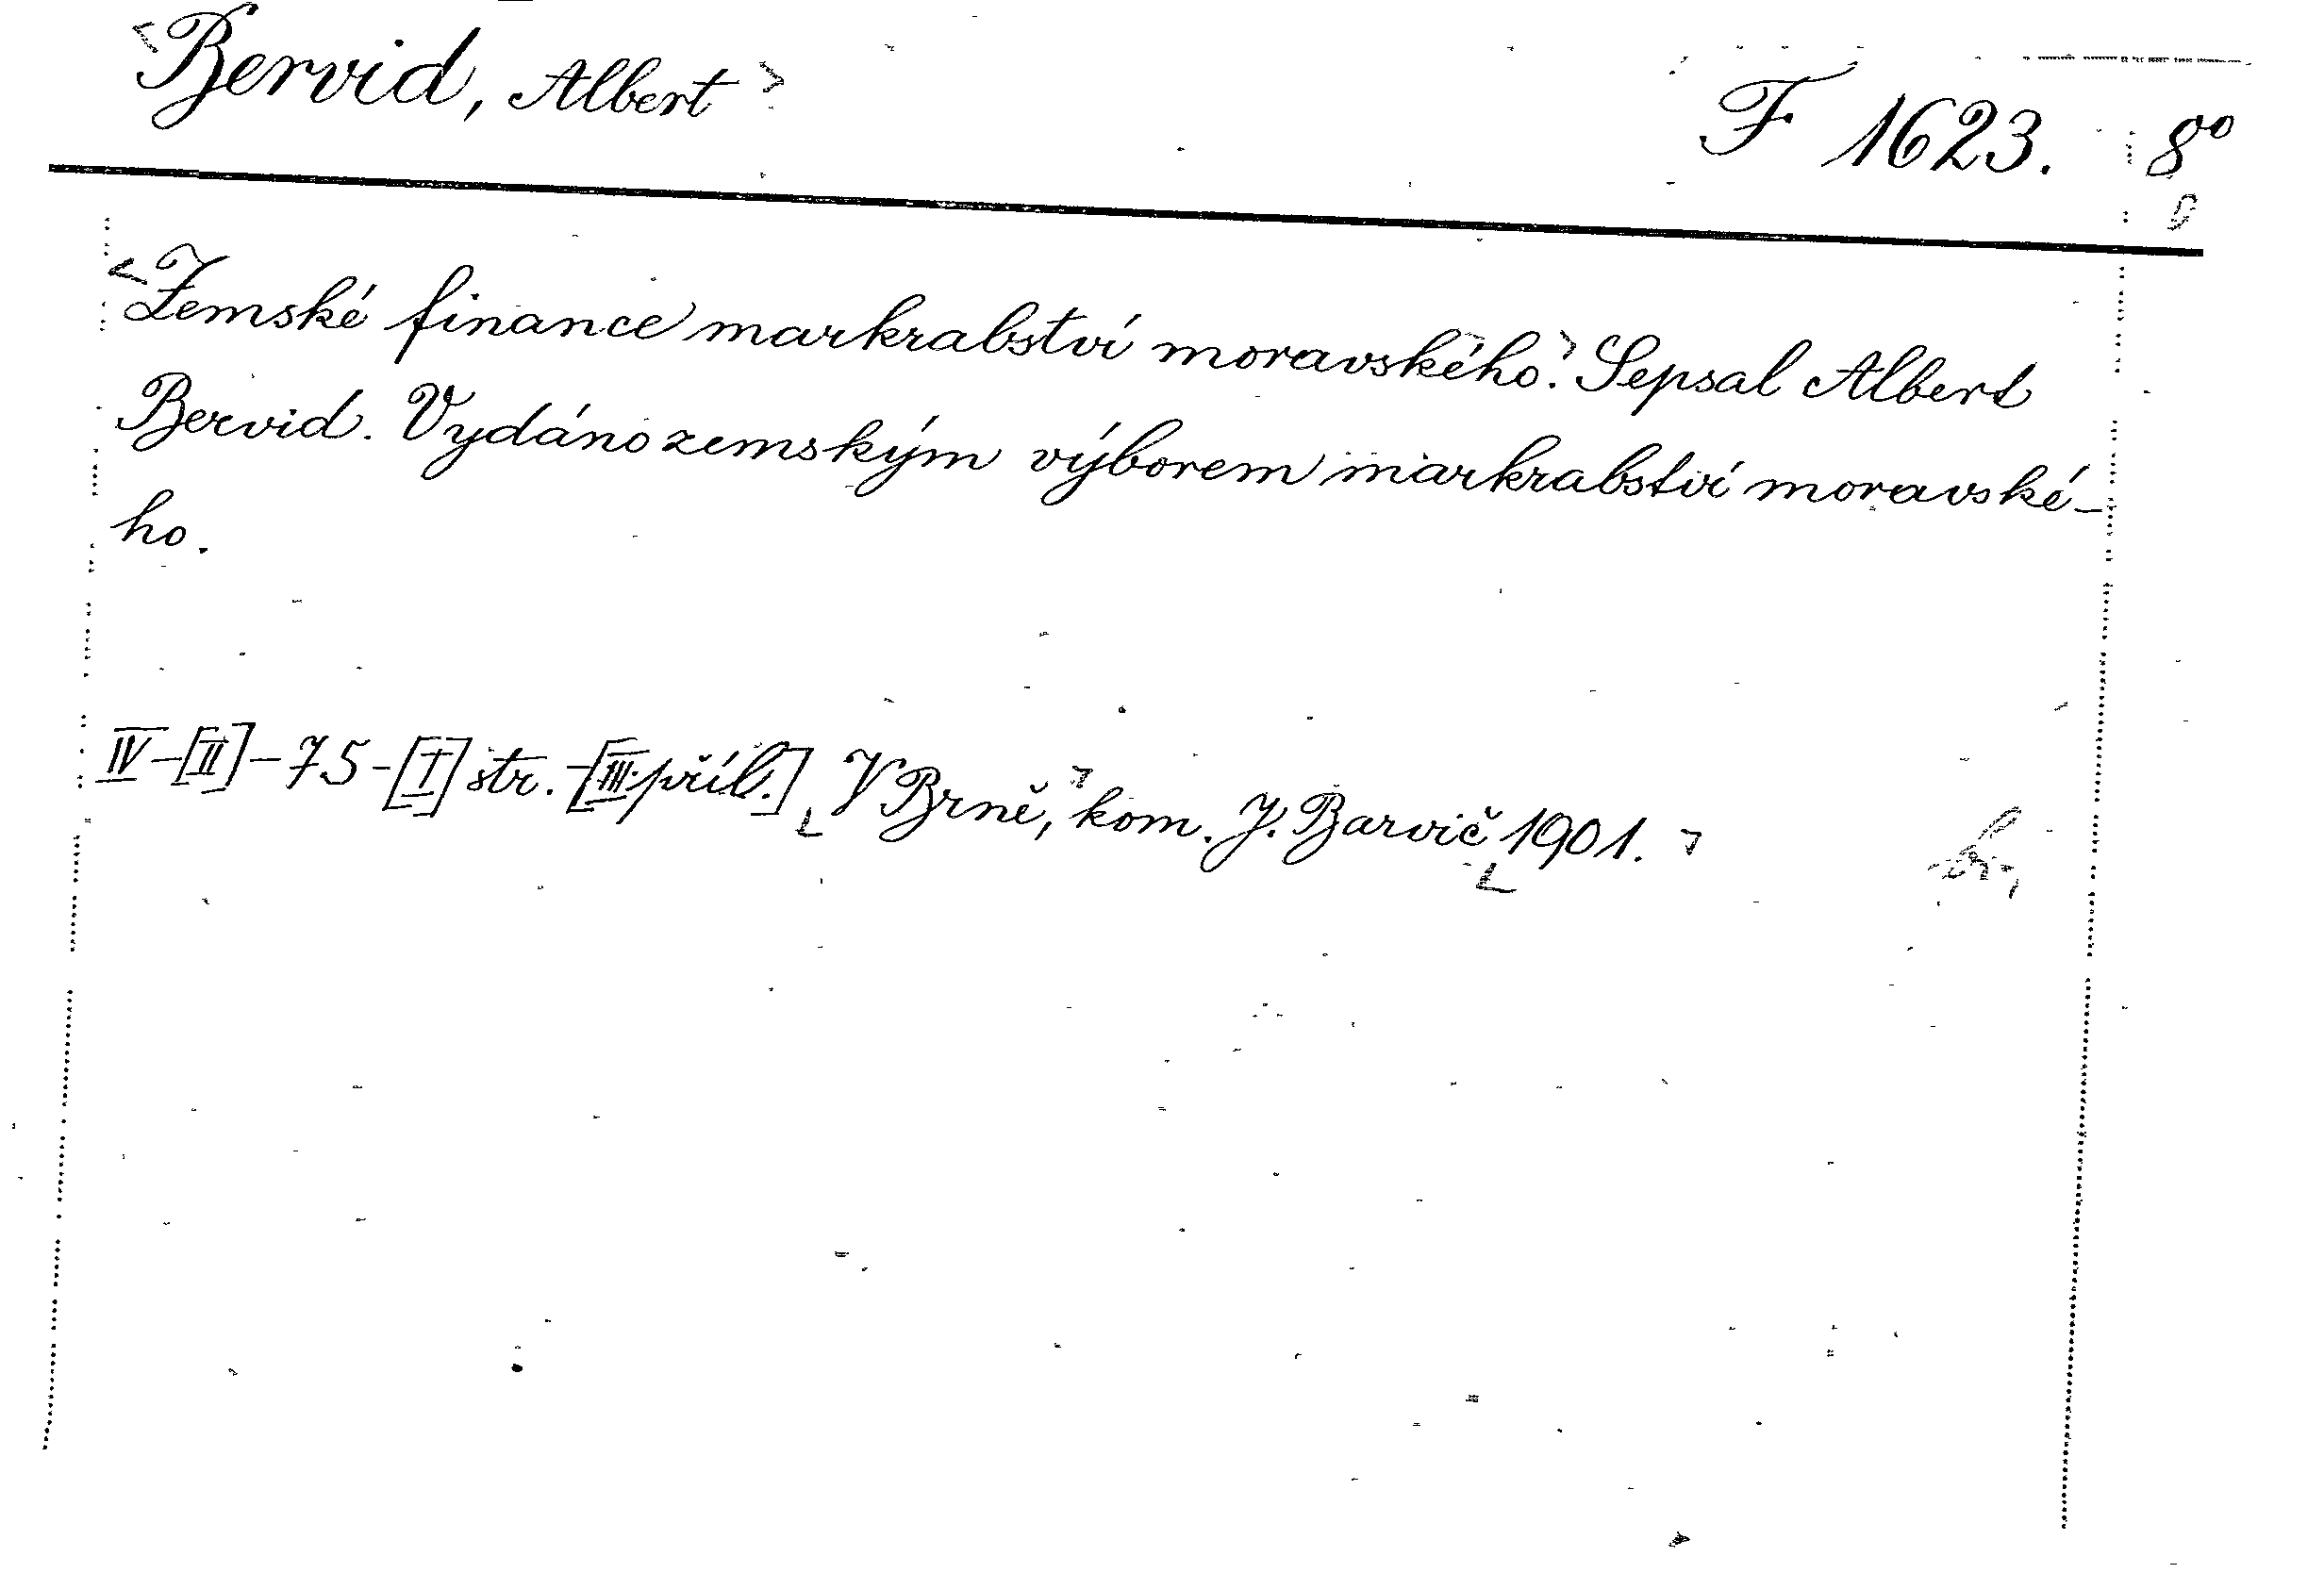 <Bervid, Albert>
F 1623. 8°
<Zemské finance markrabství moravského.> Sepsal Albert
Bervid. Vydáno zemským výborem markrabství moravské-
ho.
IV-[II]-75-[I] str.-[III příl.] V Brně, kom. J. Barvič 1901.